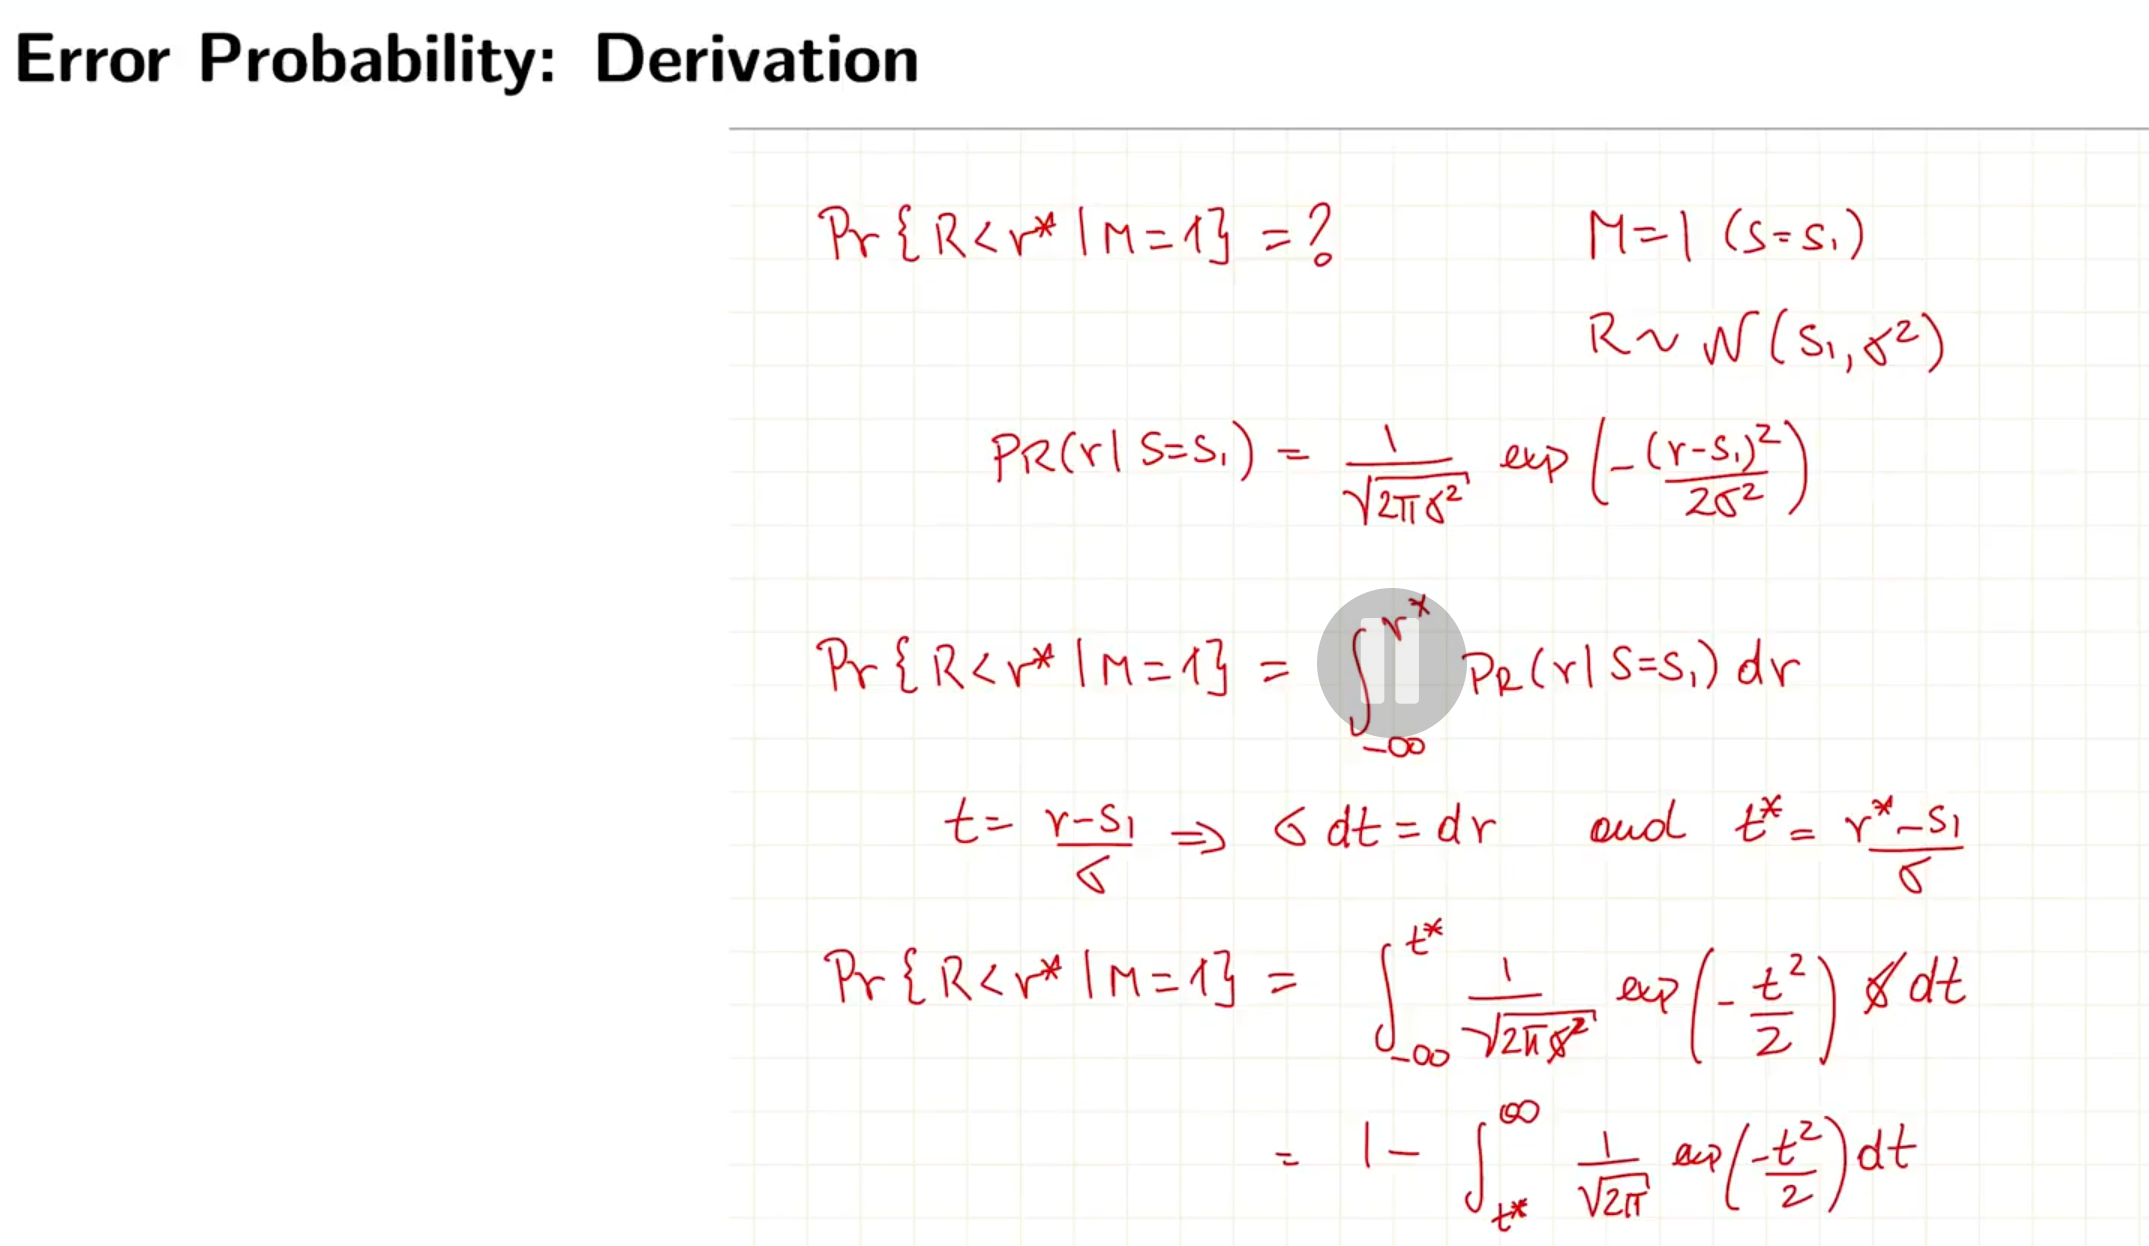 Error Probability: Derivation
Pr{R<r* | M=1} =? M=1 (S=s₁)
R ~ N(s₁, σ²)
PR(r | S=s₁) = 1/√(2πσ²) exp(-(r-s₁)²/2σ²)
Pr{R<r* | M=1} = ∫_{-∞}^{r*} PR(r | S=s₁) dr
t = (r-s₁)/σ ⇒ σ dt = dr and t* = (r*-s₁)/σ
Pr{R<r* | M=1} = ∫_{-∞}^{t*} 1/√(2πσ²) exp(-t²/2) σ dt
= 1 - ∫_{t*}^{∞} 1/√(2π) exp(-t²/2) dt